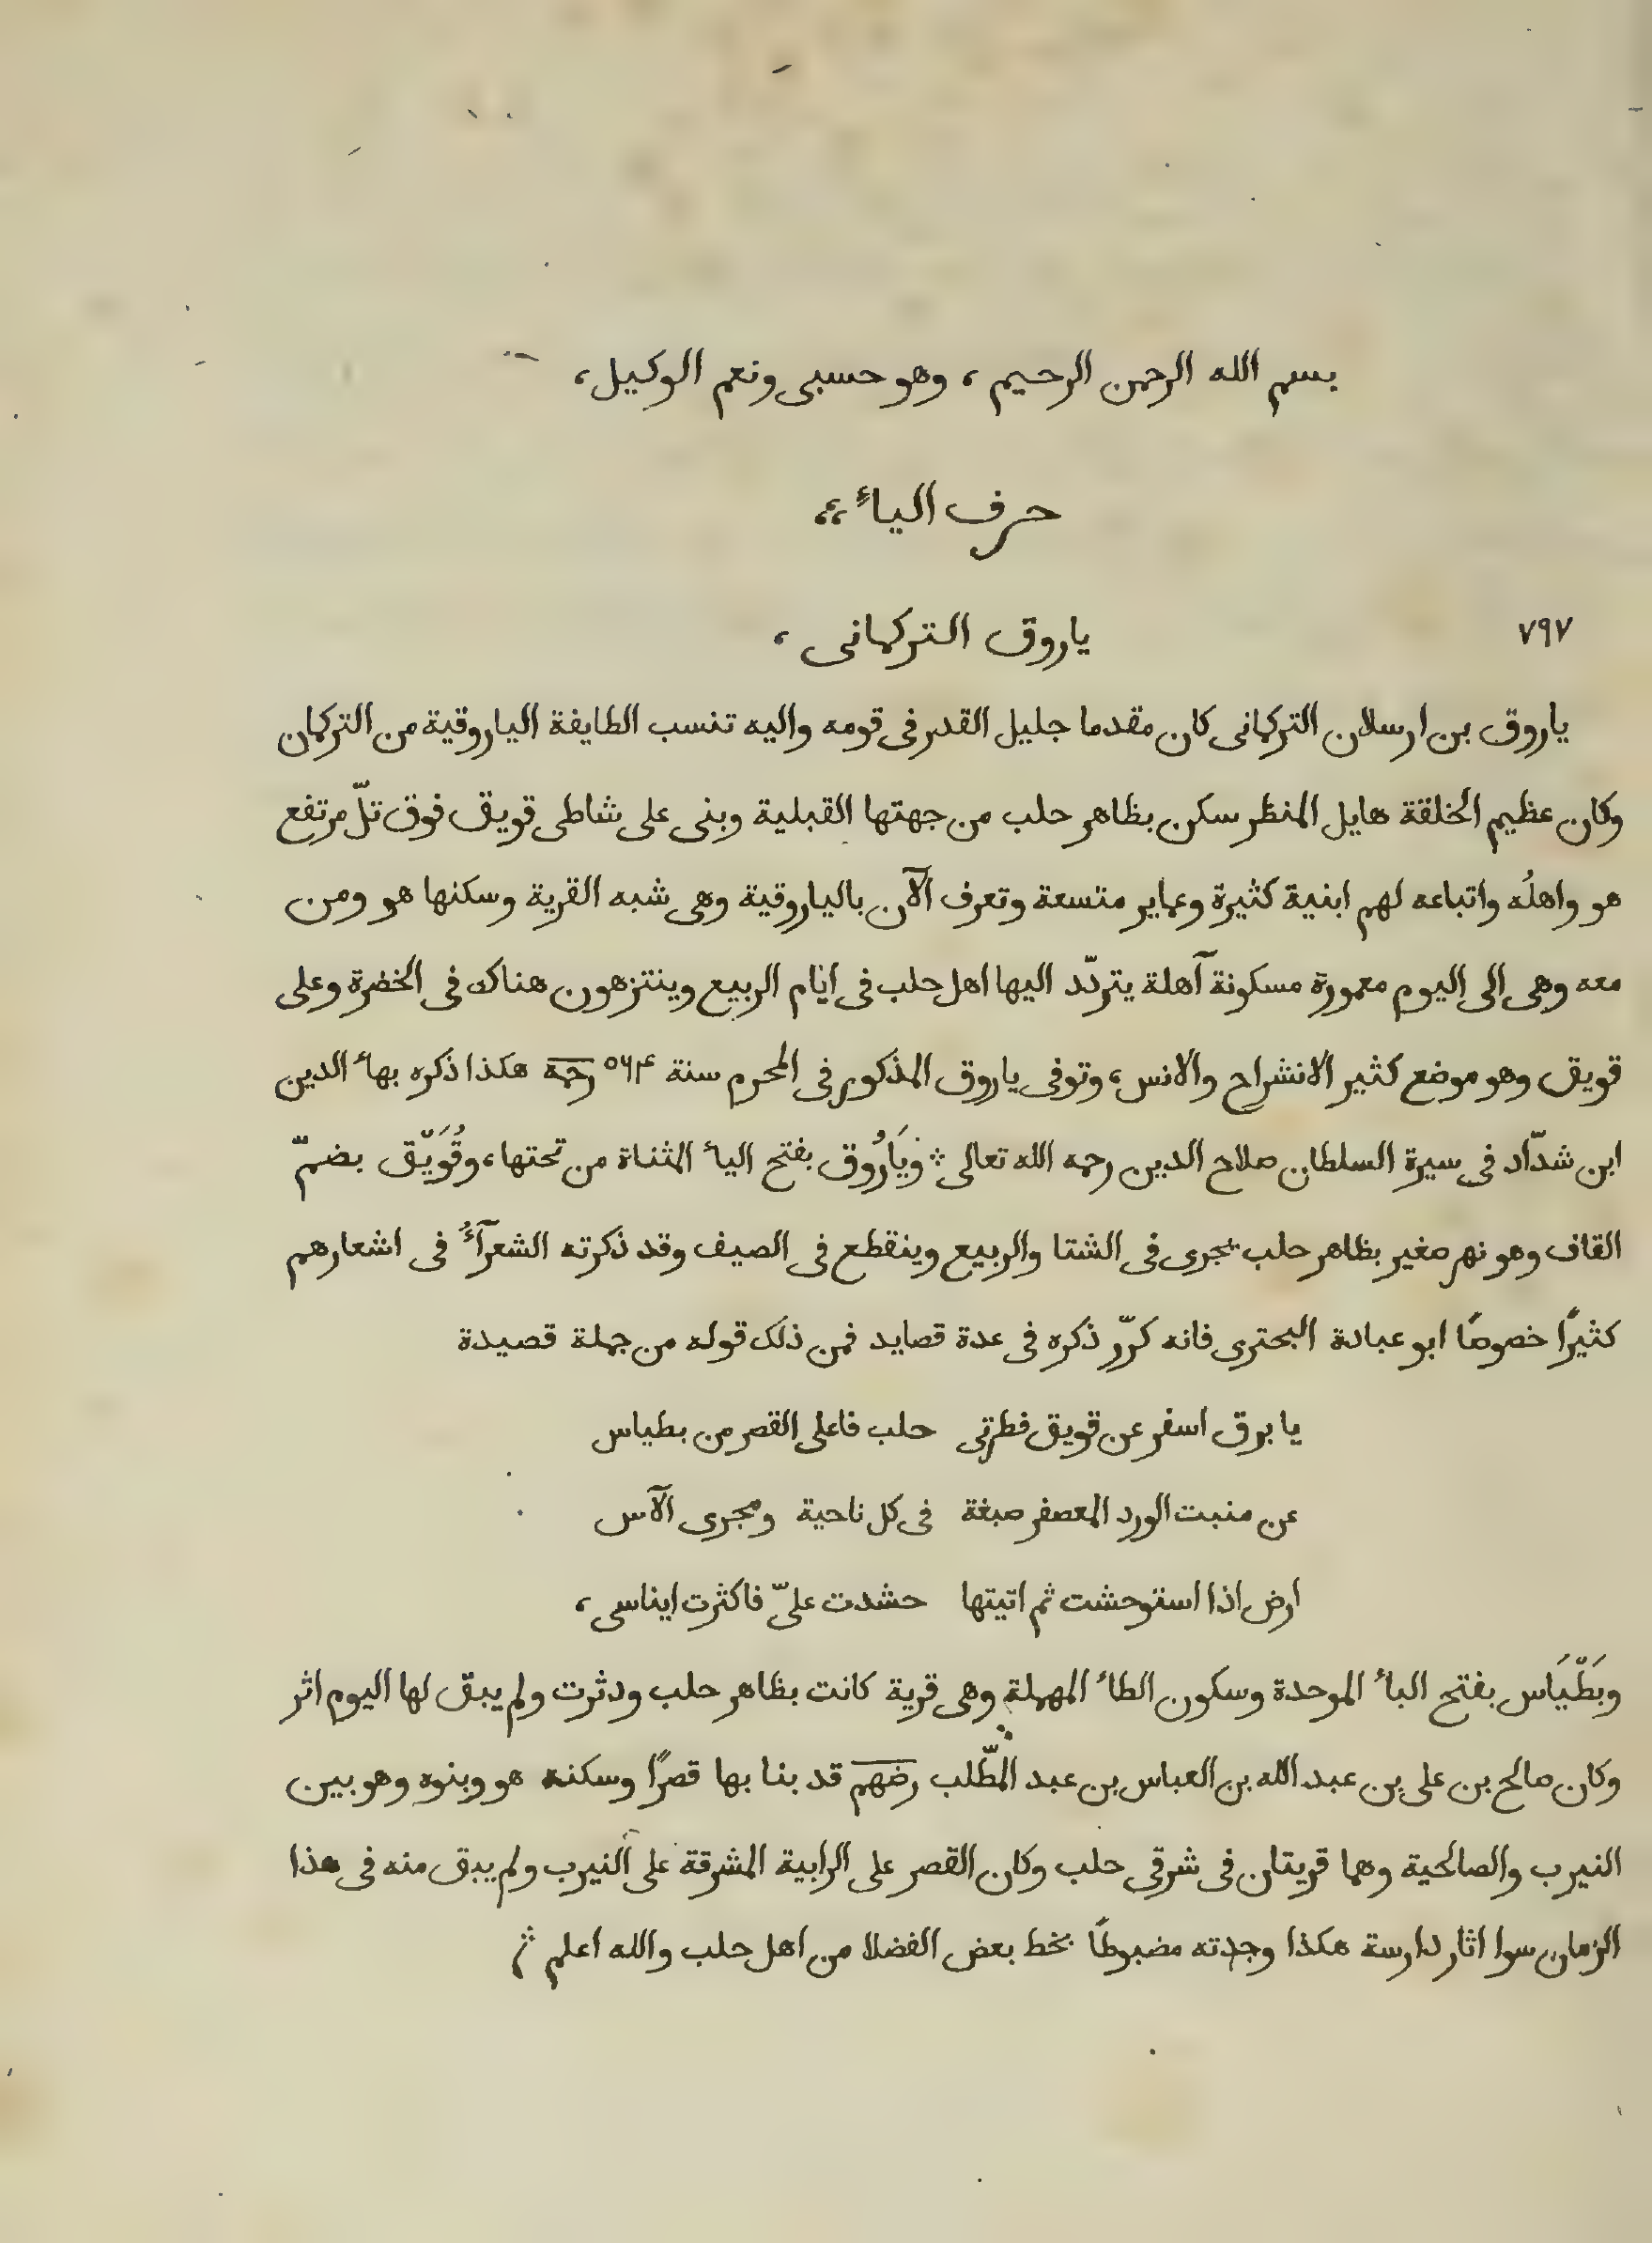 بسم الله الرحمن الرحيم ، وهو حسبى ونعم الوكيل ،
حرف اليآء
٧٩٧
ياروق التركمانى ،
ياروق بن ارسلان التركمانى كان مقدما جليل القدر فى قومه واليه تنسب الطايفة الياروقية من التركمان
وكان عظيم الخلقة هايل المنظر سكن بظاهر حلب من جهتها القبلية وبنى على شاطى قويق فوق تلّ مرتفع
هو واهلُه واتباعه لهم ابنية كثيرة وعماير متسعة وتعرف الآن بالياروقية وهى شبه القرية وسكنها هو ومن
معه وهى الى اليوم معمورة مسكونة آهلة يتردّد اليها اهل حلب فى ايّام الربيع وينتزهون هناك فى الخضرة وعلى
قويق وهو موضع كثير الانشراح والانس ، وتوفى ياروق المذكور فى المحرم سنة ٥٦٤ رحمة هكذا ذكره بهاء الدين
ابن شدّاد فى سيرة السلطان صلاح الدين رحمه الله تعالى ؞ ويَارُوق بفتح الياء المثناة من تحتها ، وقُوَيّق بضمّ
القاف وهو نهر صغير بظاهر حلب يجرى فى الشتا والربيع وينقطع فى الصيف وقد ذكرته الشعرآءُ فى اشعارهم
كثيرًا خصوصًا ابو عبادة البحترى فانه كرّر ذكره فى عدة قصايد فمن ذلك قوله من جملة قصيدة
يا برق اسفر عن قويق فطرتى حلب فاعلى القصر من بطياس
عن منبت الورد المعصفر صبغة فى كل ناحية ومجرى الآس
ارض اذا استوحشت ثم اتيتها حشدت علىّ فاكثرت ايناسى ،
وبَطّيَاس بفتح الباء الموحدة وسكون الطاء المهملة وهى قرية كانت بظاهر حلب ودثرت ولم يبق لها اليوم اثر
وكان صالح بن على بن عبد الله بن العباس بن عبد المطّلب رضهم قد بنا بها قصرًا وسكنه هو وبنوه وهو بين
النيرب والصالحية وهما قريتان فى شرقى حلب وكان القصر على الرابية المشرفة على النيرب ولم يبق منه فى هذا
الزمان سوا اثار دارسة هكذا وجدته مضبوطًا بخط بعض الفضلا من اهل حلب والله اعلم ؞